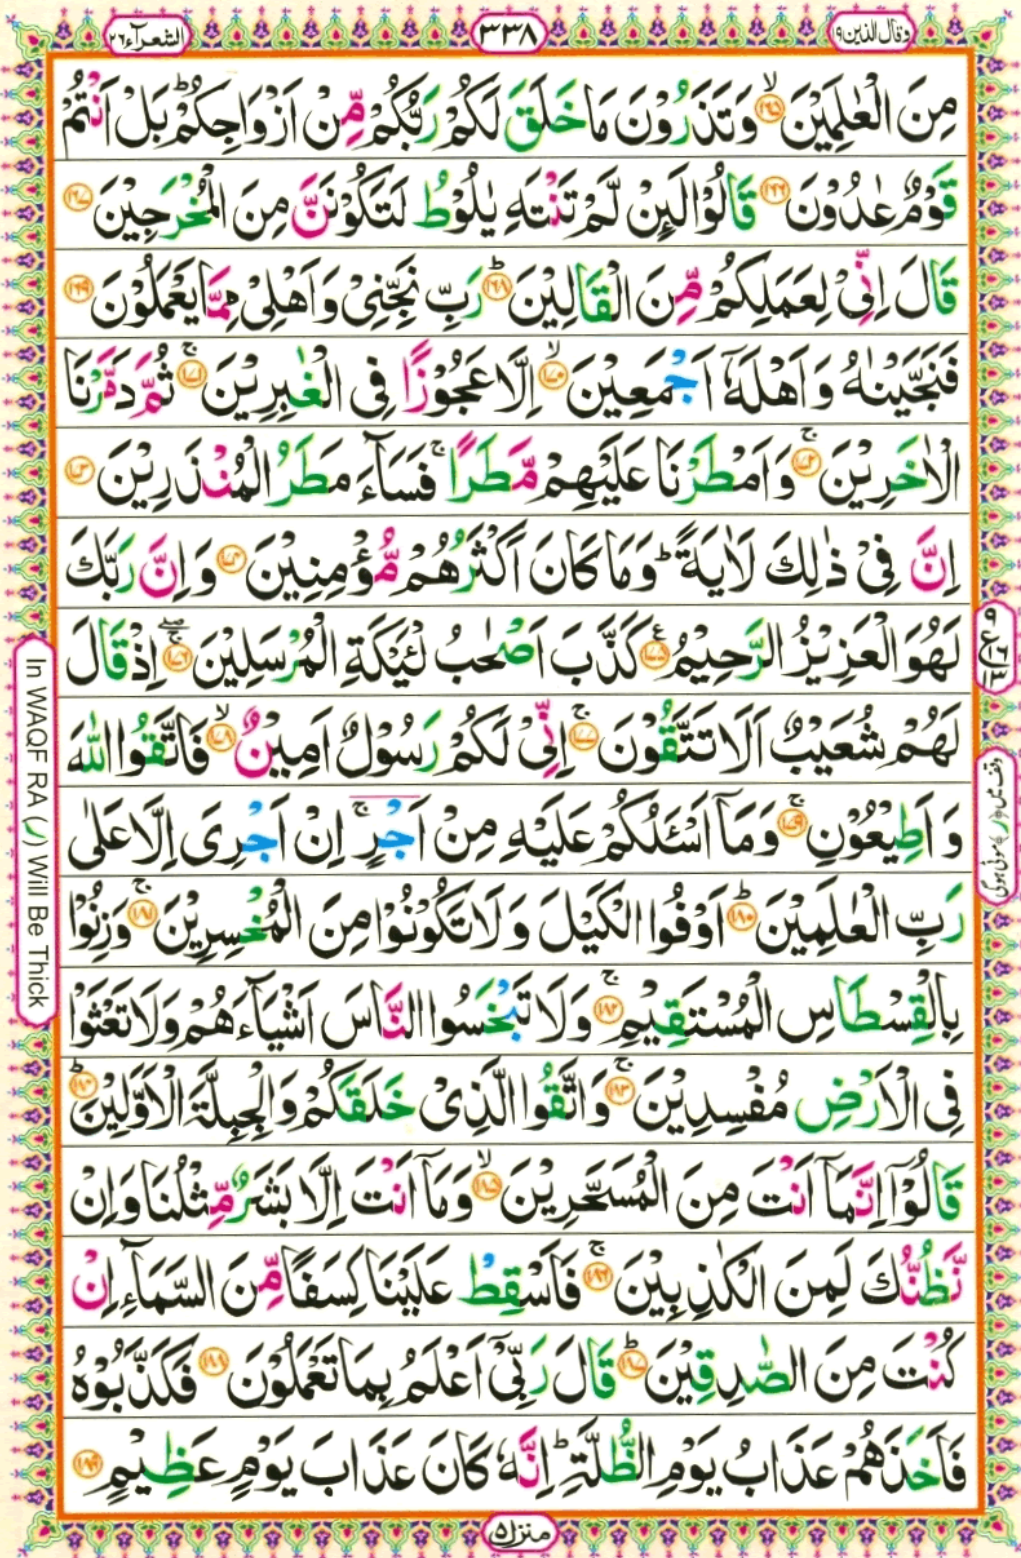 وقال الذین ۱۹
۳۳۸
الشعرآء ۲۶
مِنَ الْعٰلَمِیْنَ ۙ﴿۱۶۵﴾ وَتَذَرُوْنَ مَا خَلَقَ لَكُمْ رَبُّكُمْ مِّنْ اَزْوَاجِكُمْ ؕ بَلْ اَنْتُمْ
قَوْمٌ عٰدُوْنَ ﴿۱۶۶﴾ قَالُوْا لَىِٕنْ لَّمْ تَنْتَهِ یٰلُوْطُ لَتَكُوْنَنَّ مِنَ الْمُخْرَجِیْنَ ﴿۱۶۷﴾
قَالَ اِنِّیْ لِعَمَلِكُمْ مِّنَ الْقَالِیْنَ ؕ﴿۱۶۸﴾ رَبِّ نَجِّنِیْ وَاَهْلِیْ مِمَّا یَعْمَلُوْنَ ﴿۱۶۹﴾
فَنَجَّیْنٰهُ وَاَهْلَهٗۤ اَجْمَعِیْنَ ۙ﴿۱۷۰﴾ اِلَّا عَجُوْزًا فِی الْغٰبِرِیْنَ ۚ﴿۱۷۱﴾ ثُمَّ دَمَّرْنَا
الْاٰخَرِیْنَ ۚ﴿۱۷۲﴾ وَاَمْطَرْنَا عَلَیْهِمْ مَّطَرًا ۚ فَسَآءَ مَطَرُ الْمُنْذَرِیْنَ ﴿۱۷۳﴾
اِنَّ فِیْ ذٰلِكَ لَاٰیَةً ؕ وَمَا كَانَ اَكْثَرُهُمْ مُّؤْمِنِیْنَ ﴿۱۷۴﴾ وَاِنَّ رَبَّكَ
لَهُوَ الْعَزِیْزُ الرَّحِیْمُ ﴿۱۷۵﴾ كَذَّبَ اَصْحٰبُ لْـَٔیْكَةِ الْمُرْسَلِیْنَ ۚۖ﴿۱۷۶﴾ اِذْ قَالَ
لَهُمْ شُعَیْبٌ اَلَا تَتَّقُوْنَ ۚ﴿۱۷۷﴾ اِنِّیْ لَكُمْ رَسُوْلٌ اَمِیْنٌ ۙ﴿۱۷۸﴾ فَاتَّقُوا اللّٰهَ
وَاَطِیْعُوْنِ ۚ﴿۱۷۹﴾ وَمَاۤ اَسْـَٔلُكُمْ عَلَیْهِ مِنْ اَجْرٍ ۚ اِنْ اَجْرِیَ اِلَّا عَلٰی
رَبِّ الْعٰلَمِیْنَ ؕ﴿۱۸۰﴾ اَوْفُوا الْكَیْلَ وَلَا تَكُوْنُوْا مِنَ الْمُخْسِرِیْنَ ۚ﴿۱۸۱﴾ وَزِنُوْا
بِالْقِسْطَاسِ الْمُسْتَقِیْمِ ۚ﴿۱۸۲﴾ وَلَا تَبْخَسُوا النَّاسَ اَشْیَآءَهُمْ وَلَا تَعْثَوْا
فِی الْاَرْضِ مُفْسِدِیْنَ ۚ﴿۱۸۳﴾ وَاتَّقُوا الَّذِیْ خَلَقَكُمْ وَالْجِبِلَّةَ الْاَوَّلِیْنَ ؕ﴿۱۸۴﴾
قَالُوْۤا اِنَّمَاۤ اَنْتَ مِنَ الْمُسَحَّرِیْنَ ۙ﴿۱۸۵﴾ وَمَاۤ اَنْتَ اِلَّا بَشَرٌ مِّثْلُنَا وَاِنْ
نَّظُنُّكَ لَمِنَ الْكٰذِبِیْنَ ۚ﴿۱۸۶﴾ فَاَسْقِطْ عَلَیْنَا كِسَفًا مِّنَ السَّمَآءِ اِنْ
كُنْتَ مِنَ الصّٰدِقِیْنَ ؕ﴿۱۸۷﴾ قَالَ رَبِّیْۤ اَعْلَمُ بِمَا تَعْمَلُوْنَ ﴿۱۸۸﴾ فَكَذَّبُوْهُ
فَاَخَذَهُمْ عَذَابُ یَوْمِ الظُّلَّةِ ؕ اِنَّهٗ كَانَ عَذَابَ یَوْمٍ عَظِیْمٍ ﴿۱۸۹﴾
منزل ۵
وقف میں (ر) موٹی ہوگی
In WAQF RA (ر) Will Be Thick